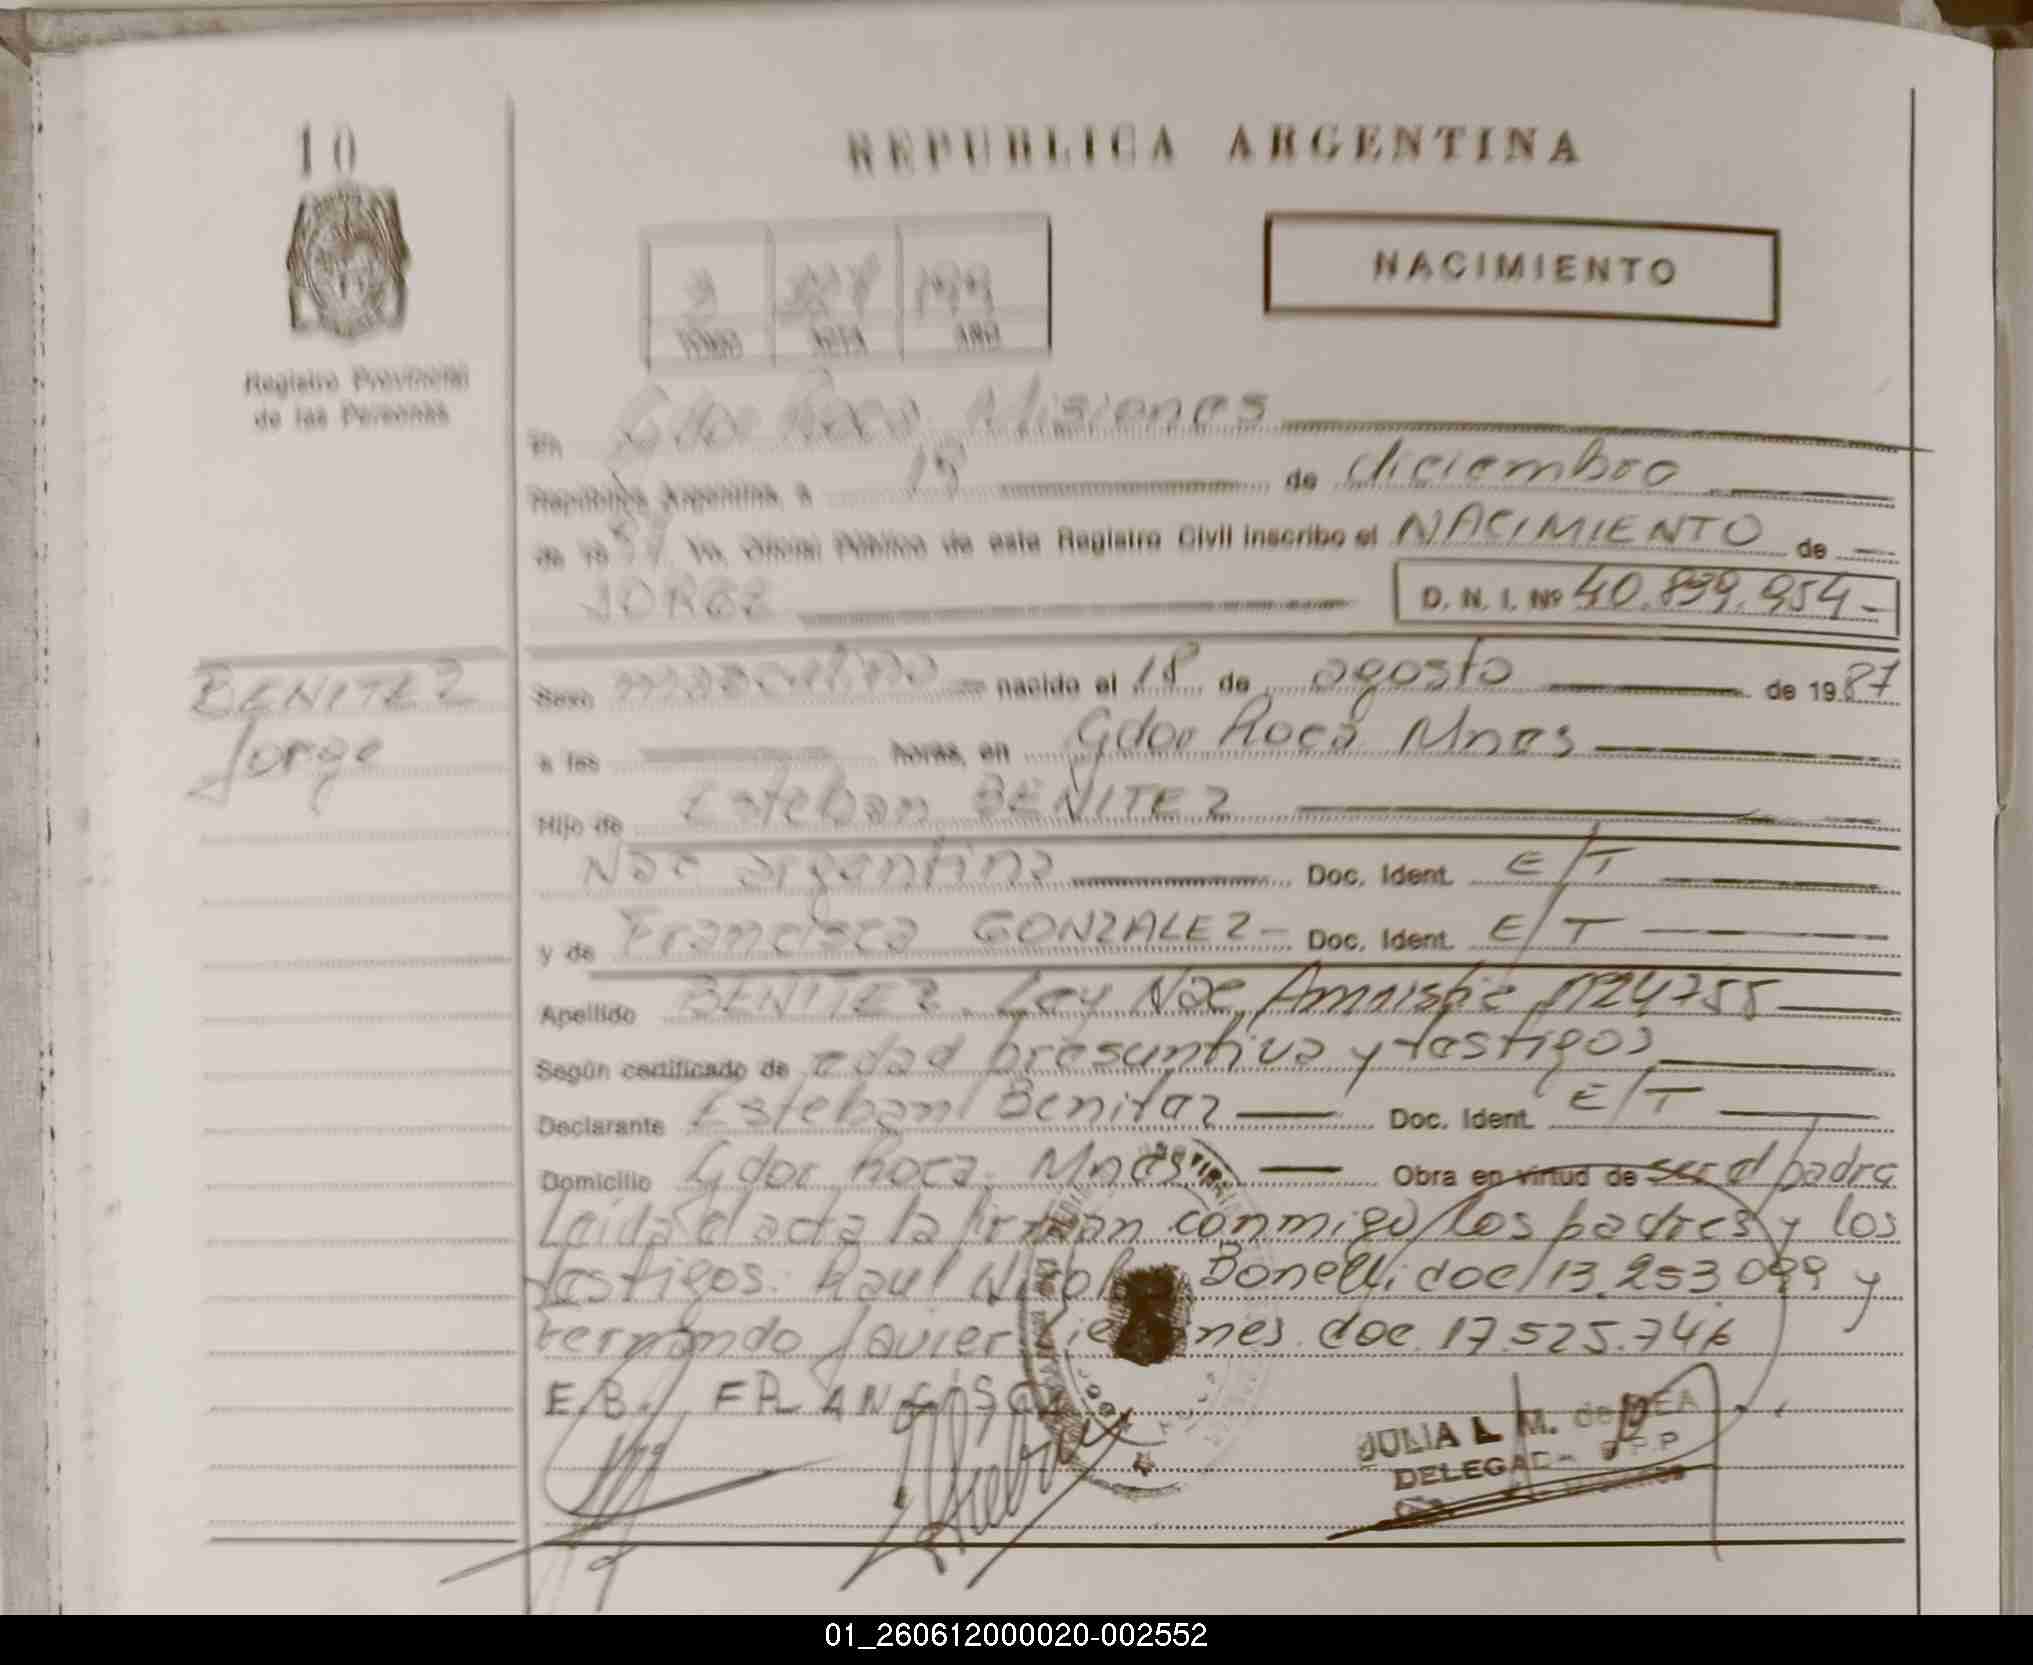 10
REPUBLICA ARGENTINA
NACIMIENTO
TOMO ACTA AÑO
Registro Provincial
de las Personas
En Gdor Roca Misiones
República Argentina, a 18 de diciembre
de 19 Yo, Oficial Público de este Registro Civil inscribo el NACIMIENTO de
JORGE D. N. I. Nº 40.899.954-
BENITEZ
Jorge
Sexo masculino nacido el 18 de agosto de 1987
a las horas, en Gdor Roca Mnes
Hijo de Esteban BENITEZ
Nac argentina Doc. Ident. E/T
y de Francisca GONZALEZ- Doc. Ident. E/T
Apellido BENITEZ. Ley Nac Amnistia Nº24755
Según certificado de edad presuntiva y testigos
Declarante Esteban Benitez Doc. Ident. E/T
Domicilio Gdor Roca. Mnes Obra en virtud de ser el padre
Leida el acta la firman conmigo los padres y los
testigos. Raul Bonelli doc 13.253.099 y
Fernando Javier doc. 17.525.746
E.B. FRANCISCA
JULIA L. M. de
DELEGADA R.P.P
01_260612000020-002552